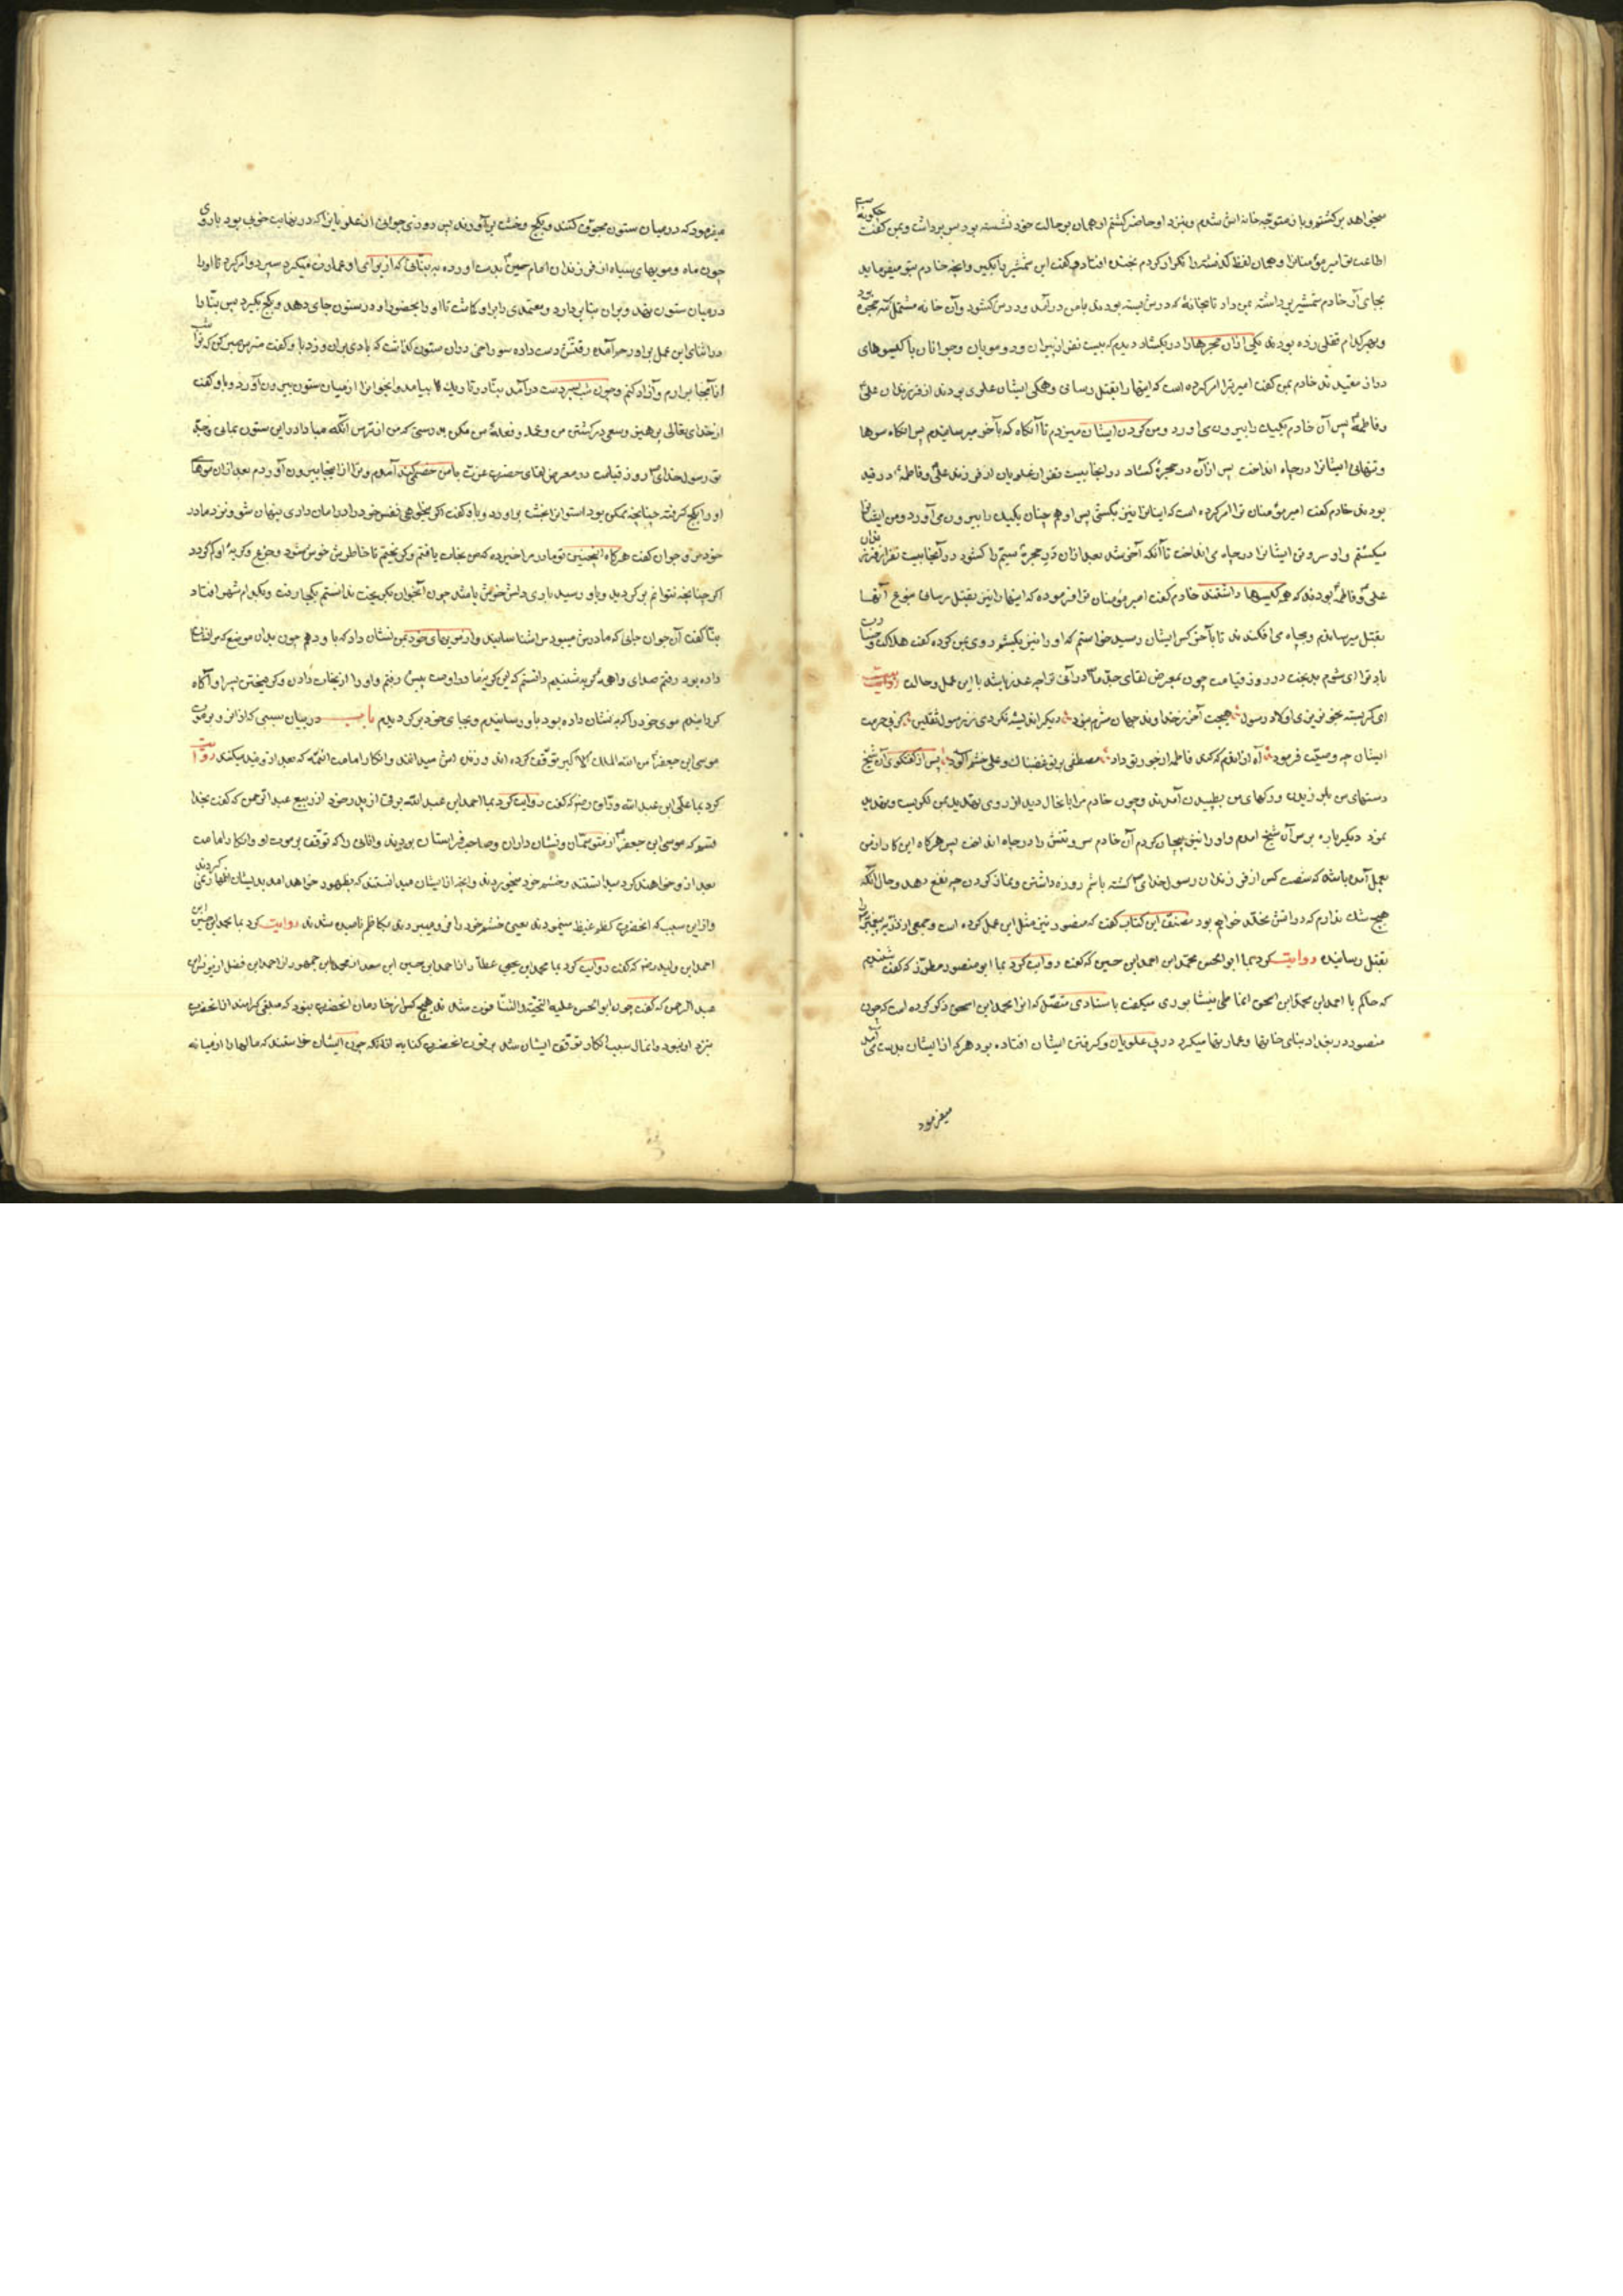 میخواهد برکشتم و باز متوجه خانه اش شدم و بنزد او حاضر کشتم او همان بر حالت خود نشسته بود سر برداشت و بمن کفت چکونه
اطاعت تو امیر مؤمنانرا و همان لفظ که کفته بودم را تکرار کردم بخنده افتاد و کفت این شمشیر را بکیر و آنچه خادم بتو میفرماید
بجای آر خادم شمشیر برداشته بمن داد تا بخانۀ که درش بسته بودند با من درآمد و درش کشود و آن خانه مشتمل بر سه حجره بود
و بهر کدام قفلی زده بودند یکی از آن حجرها را در بکشاد دیدم که بیست نفر از پیران و دو مویان و جوانان با کیسوهای
دراز مقیدند خادم بمن کفت امیر ترا امر کرده است که اینها را بقتل رسانی و همکی ایشان علوی بودند از فرزندان علی
و فاطمه پس آن خادم یکیک را بیرون می اورد و من کردن ایشان میزدم تا آنکاه که بآخر میرسانیدم پس انکاه سرها
و تنهای ایشانرا در چاه انداخت پس از آن در حجرۀ کشاد در اینجا بیست نفر از علویان از فرزند علی و فاطمه در قید
بودند خادم کفت امیر مؤمنان ترا امر کرده است که اینانرا نیز بکشی پس او هم چنان یکیک را بیرون می آورد و من ایشانرا
میکشتم و او سر و تن ایشانرا در چاه می انداخت تا آنکه آخر شد بعد از آن در حجرۀ سیم را کشود در آنجا بیست نفر از فرزندان
علی و فاطمه بودند که همه کیسها داشتند خادم کفت امیر مؤمنان ترا فرموده که اینها را نیز بقتل رسانی من نیز آنها
بقتل میرساندم و بچاه می افکندند تا بآخر کس ایشان رسید خواستم که او را نیز بکشم روی بمن کرده کفت هلاکت و خسارت
باد ترا ای شوم بدبخت در روز قیامت چون بمعرض لقای جد ما درآئی ترا چه عذر باشد با این عمل و حالت
ای کمر بسته بخونریزی اولاد رسول هیچت آمد ز خداوند جهان شرم نبود دیکر اندیشه نکردی ز رسول ثقلین که در حرمت
ایشان چه وصیت فرمود آه از اندم که کند فاطمه از جور تو داد مصطفی بر تو غضبناک و علی خشم آلود پس از کفتکوی آن شیخ
دستهای من بلرزیدن و رکهای من بطپیدن آمدند و چون خادم مرا با نحال دید از روی تهدید بمن نکریست و تهدید
نمود دیکر باره بر سر آن شیخ امدم و او را نیز بیجان کردم آن خادم سر و تنش را در چاه انداخت پس هرکاه این کار از من
بعمل آمده باشد که شصت کس از فرزندان رسول خدای کشته باشم روزه داشتن و نماز کردن چه نفع دهد و حال آنکه
هیچ شک ندارم که در آتش مخلد خواهم بود مصنف این کتاب کفت که منصور نیز مثل این عمل کرده است و جمعی از ذریه پیغمبر را
بقتل رسانیده روایت کرد بما ابو الحسن محمد ابن احمد ابن حسین که کفت روایت کرد بما ابو منصور مطرز که کفت شنیدم
که حاکم با احمد ابن محمد ابن اسحق انماطی نیشابوری میکفت باسنادی متصل که انرا محمد ابن اسحق ذکر کرده است که چون
منصور در بغداد بنای خانها و عمارتها میکرد در پی علویان و کرفتن ایشان افتاده بود هر که از ایشان بدست می آمد
میفرمود
میفرمود که در میان ستون مجوف کنند و بکچ و خشت برآوردند پس روزی جوانی از علویانرا که در نهایت خوبی بود با روی
چون ماه و مویهای سیاه از فرزندان امام حسن بدست اورده به بنائی که از برای او عمارت میکرد سپرد و امر کرد تا او را
در میان ستون نهد و بر ان بنا بردارد و معتمدی را بر او کماشت تا او را بحضور او در ستون جای دهد و بکچ بکیرد پس بنا را
در اثنای این عمل بر او رحم آمده رقتش دست داده سوراخی در ان ستون کذاشت که بادی بر ان وزد با او کفت متر س صبر کن که ترا شب
از آنجا برارم و آزاد کنم و چون شب بسر دست درآمد بنا در تاریک بیامد و آنجوانرا از میان ستون بیرون آورد و باو کفت
از خدای تعالی بپرهیز و سعی در کشتن من و عمله و فعلۀ من مکن بدرستی که من از ترس آنکه مبادا در این ستون بمانی و جد
تو رسول خدای روز قیامت در معرض لقای حضرت عزت با من خصمی کند آمدم و ترا از اینجا بیرون آوردم بعد از آن موهای
او را بکچ کرفته چنانچه ممکن بود استوانرا عیش بر اورد و باو کفت اکر میخواهی نفس خود را در امان داری پنهان شو و نزد مادر
خود مرو جوان کفت هرکاه اینچنین تو مادر مرا خبر ده که من نجات یافتم و کریختم تا خاطرش خوش شود و جزع و کریۀ او کم کردد
اکر چنانچه نتوانم برکردید و باو رسید باری دلش خوش باشد چون آنجوان بکریخت ندانستم بکجا رفت و بکدام شهر افتاد
بنا کفت آن جوان جائی که مادرش میبود مرا شناسانید و از مویهای خود بمن نشان داد که باو دهم چون بدان موضع که مرا نشان
داده بود رفتم صدای واهمۀ کریه شنیدم دانستم که این کریۀ مادر اوست پیش رفتم و او را از نجات دادن و کریختن پسر او آکاه
کردانیدم موی خود را که به نشان داده بود باو رسانیدم و بجای خود برکردیدم باب در بیان سببی که از انرو بر موت
موسی ابن جعفر من الله الملک الاکبر توقف کرده اند و زنده اش میدانند و انکار امامت ائمه که بعد از وبند میکنند روایت
کرد بما علی ابن عبد الله وراق رضه که کفت روایت کرد بما احمد ابن عبد الله برقی از پدر خود از ربیع عبد الرحمن که کفت بخدا
قسم که موسی ابن جعفر از متوسمان و نشان داران و صاحب فراستان بودند و انانی را که توقف بر موت او و انکار امامت
بعد از و خواهند کرد میدانستند و خشم خود میخوردند و انچه از ایشان میدانستند که بظهور خواهد امد بدیشان اظهار نمی کردند
و از این سبب که انحضرت کظم غیظ مینمودند یعنی خشم خود را فرو میبردند بکاظم نامیده شدند روایت کرد بما محمد ابن حسین ابن
احمد ابن ولید رضه که کفت روایت کرد بما محمد ابن یحیی عطار از احمد ابن حسین ابن سعید از محمد ابن جمهور از احمد ابن فضل از یونس ابن
عبد الرحمن که کفت چون ابو الحسن علیه التحیة و الثنا فوت شدند هیچ کس از خادمان انحضرت نبود که مبلغی کرامند از انحضرت
بنزد او نبود و انمال سبب انکار و توقف ایشان شد بر فوت انحضرت کنایه از آنکه چون ایشان خواستند که مالها را از میانه